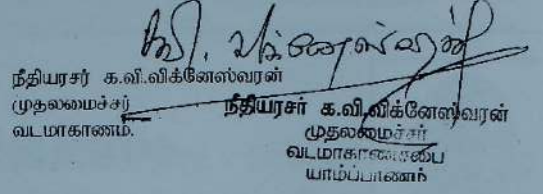 க.வி. விக்னேஸ்வரன்
நீதியரசர் க.வி.விக்னேஸ்வரன்
முதலமைச்சர்
வடமாகாணம்.
நீதியரசர் க.வி.விக்னேஸ்வரன்
முதலமைச்சர்
வடமாகாணசபை
யாழ்ப்பாணம்